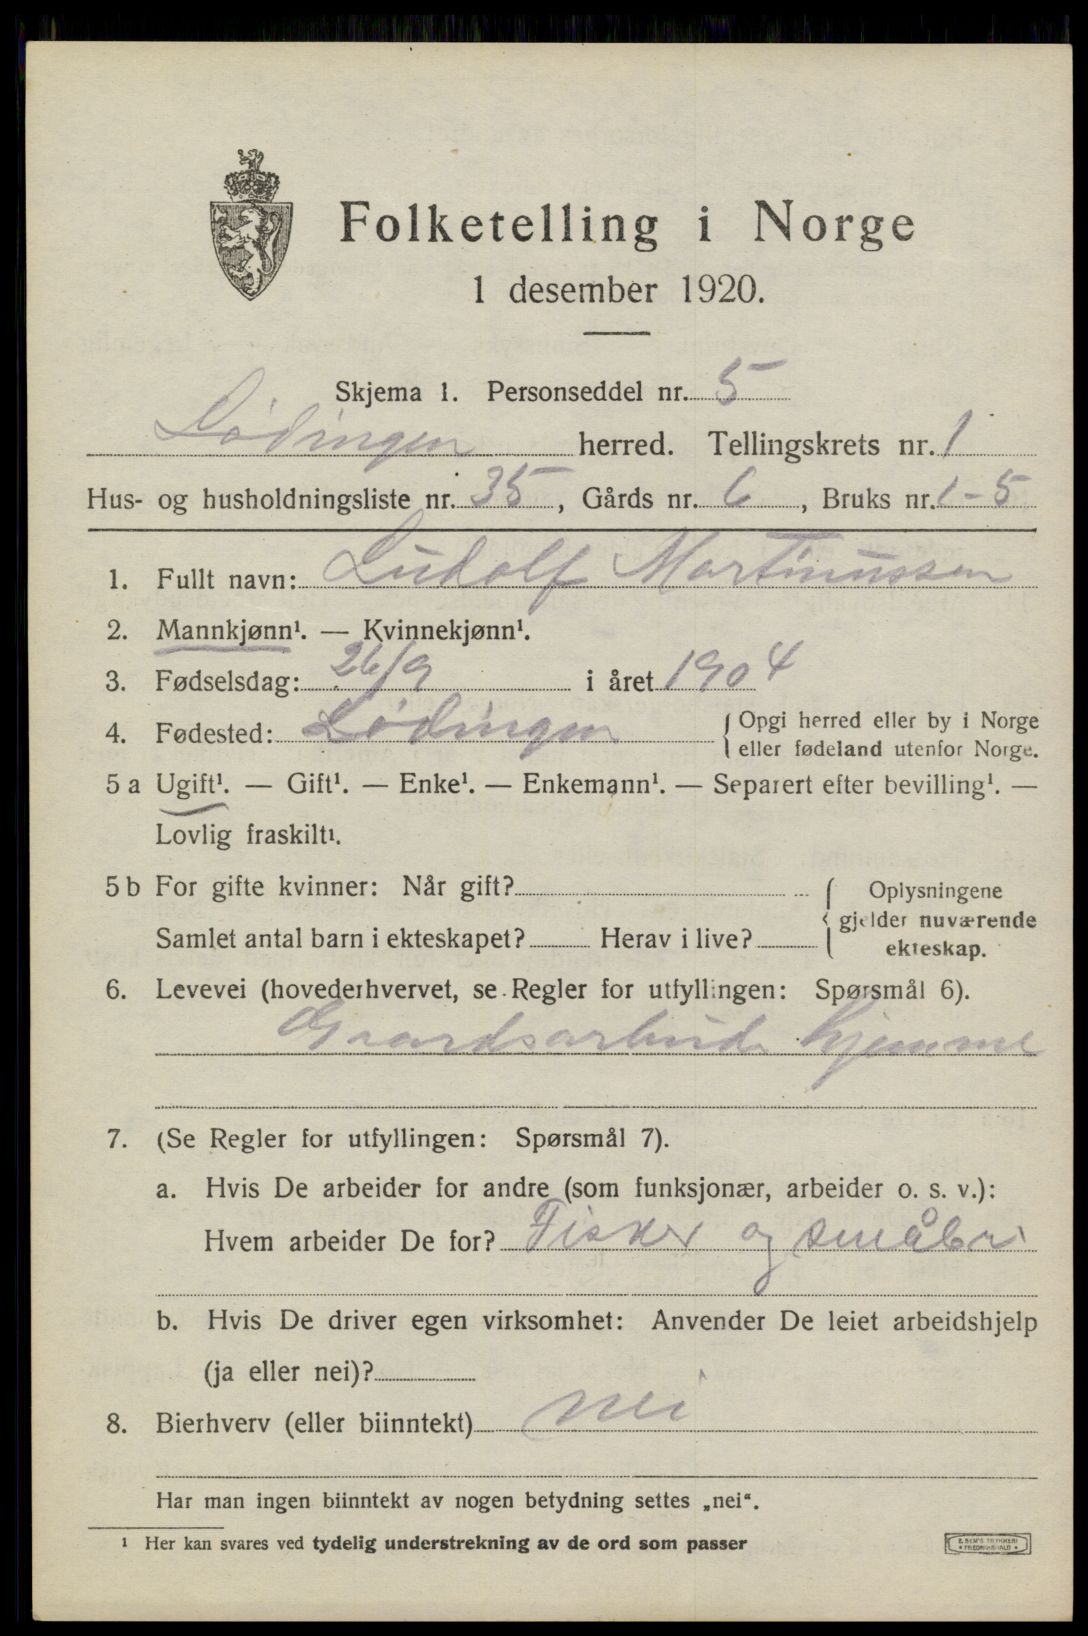 Folketelling i Norge
1 desember 1920.
Skjema 1. Personseddel nr. 5
Lødingen herred. Tellingskrets nr. 1
Hus- og husholdningsliste nr. 35, Gårds nr. 6, Bruks nr. 1-5
1. Fullt navn: Ludolf Martinussen
2. Mannkjønn¹. — Kvinnekjønn¹.
3. Fødselsdag: 26/9 i året 1904
4. Fødested: Lødingen { Opgi herred eller by i Norge
eller fødeland utenfor Norge.
5 a Ugift¹. — Gift¹. — Enke¹. — Enkemann¹. — Separert efter bevilling¹. —
Lovlig fraskilt¹.
5 b For gifte kvinner: Når gift? { Oplysningene
gjelder nuværende
Samlet antal barn i ekteskapet? Herav i live?
ekteskap.
6. Levevei (hovederhvervet, se Regler for utfyllingen: Spørsmål 6).
Gaardsarbeide hjemme
7. (Se Regler for utfyllingen: Spørsmål 7).
a. Hvis De arbeider for andre (som funksjonær, arbeider o. s. v.):
Hvem arbeider De for? Fisker og småbr
b. Hvis De driver egen virksomhet: Anvender De leiet arbeidshjelp
(ja eller nei)?
8. Bierhverv (eller biinntekt) nei
Har man ingen biinntekt av nogen betydning settes „nei“.
¹ Her kan svares ved tydelig understrekning av de ord som passer
E. SEM'S TRYKKERI
• FREDRIKSHALD •